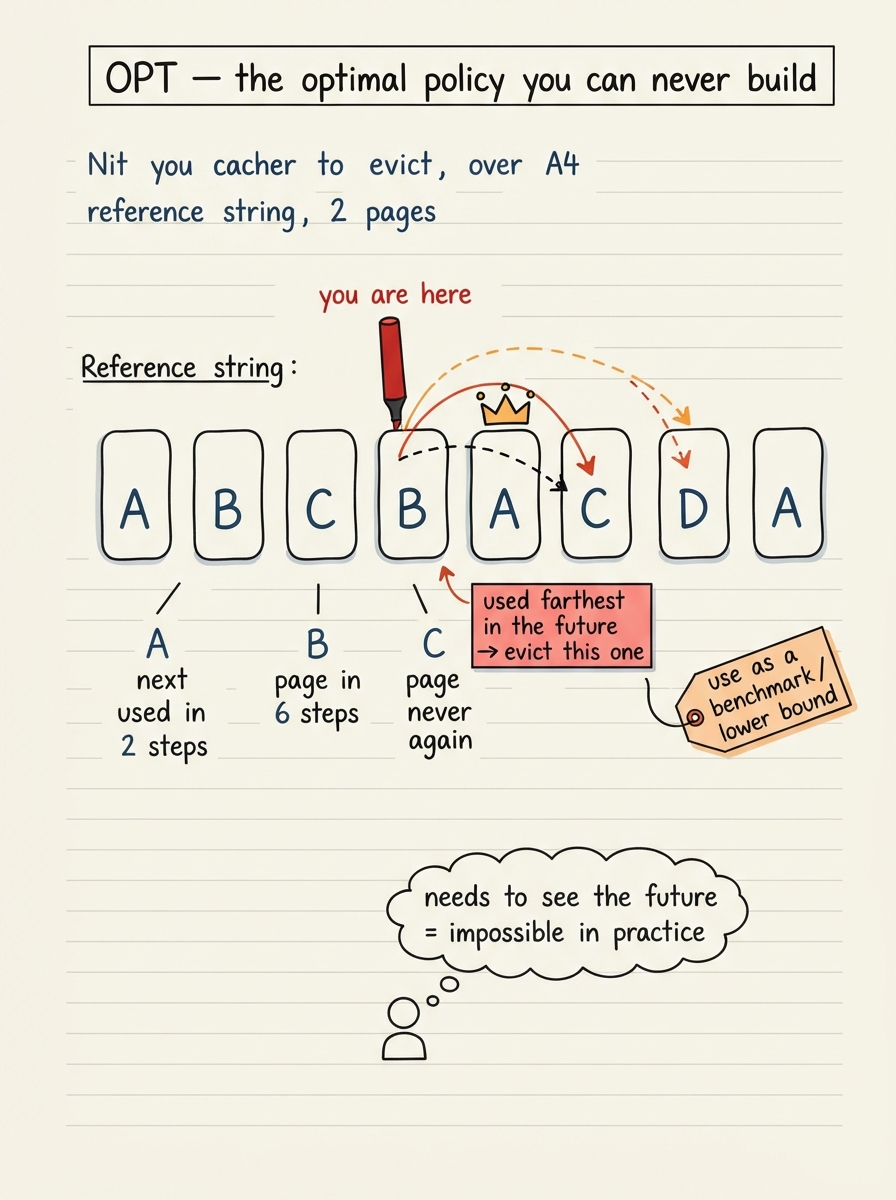 OPT — the optimal policy you can never build
Nit you cacher to evict, over A4
reference string, 2 pages
you are here
Reference string:
A B C B A C D A
A
next
used in
2 steps
B
page in
6 steps
C
page
never
again
used farthest
in the future
→ evict this one
use as a
benchmark/
lower bound
needs to see the future
= impossible in practice